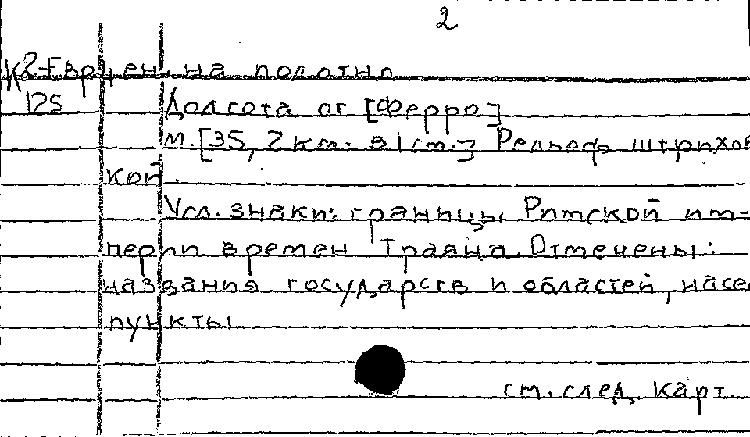 2
К2-Евр чен. на полотно
125 Долгота от [Ферро]
М. [35,2 км. в 1 см.] Рельеф штрихов
кой.
Усл. знаки: границы Римской им-
перии времен Траяна. Отмечены:
названия государств и областей, насе
пункты
см. след. карт.